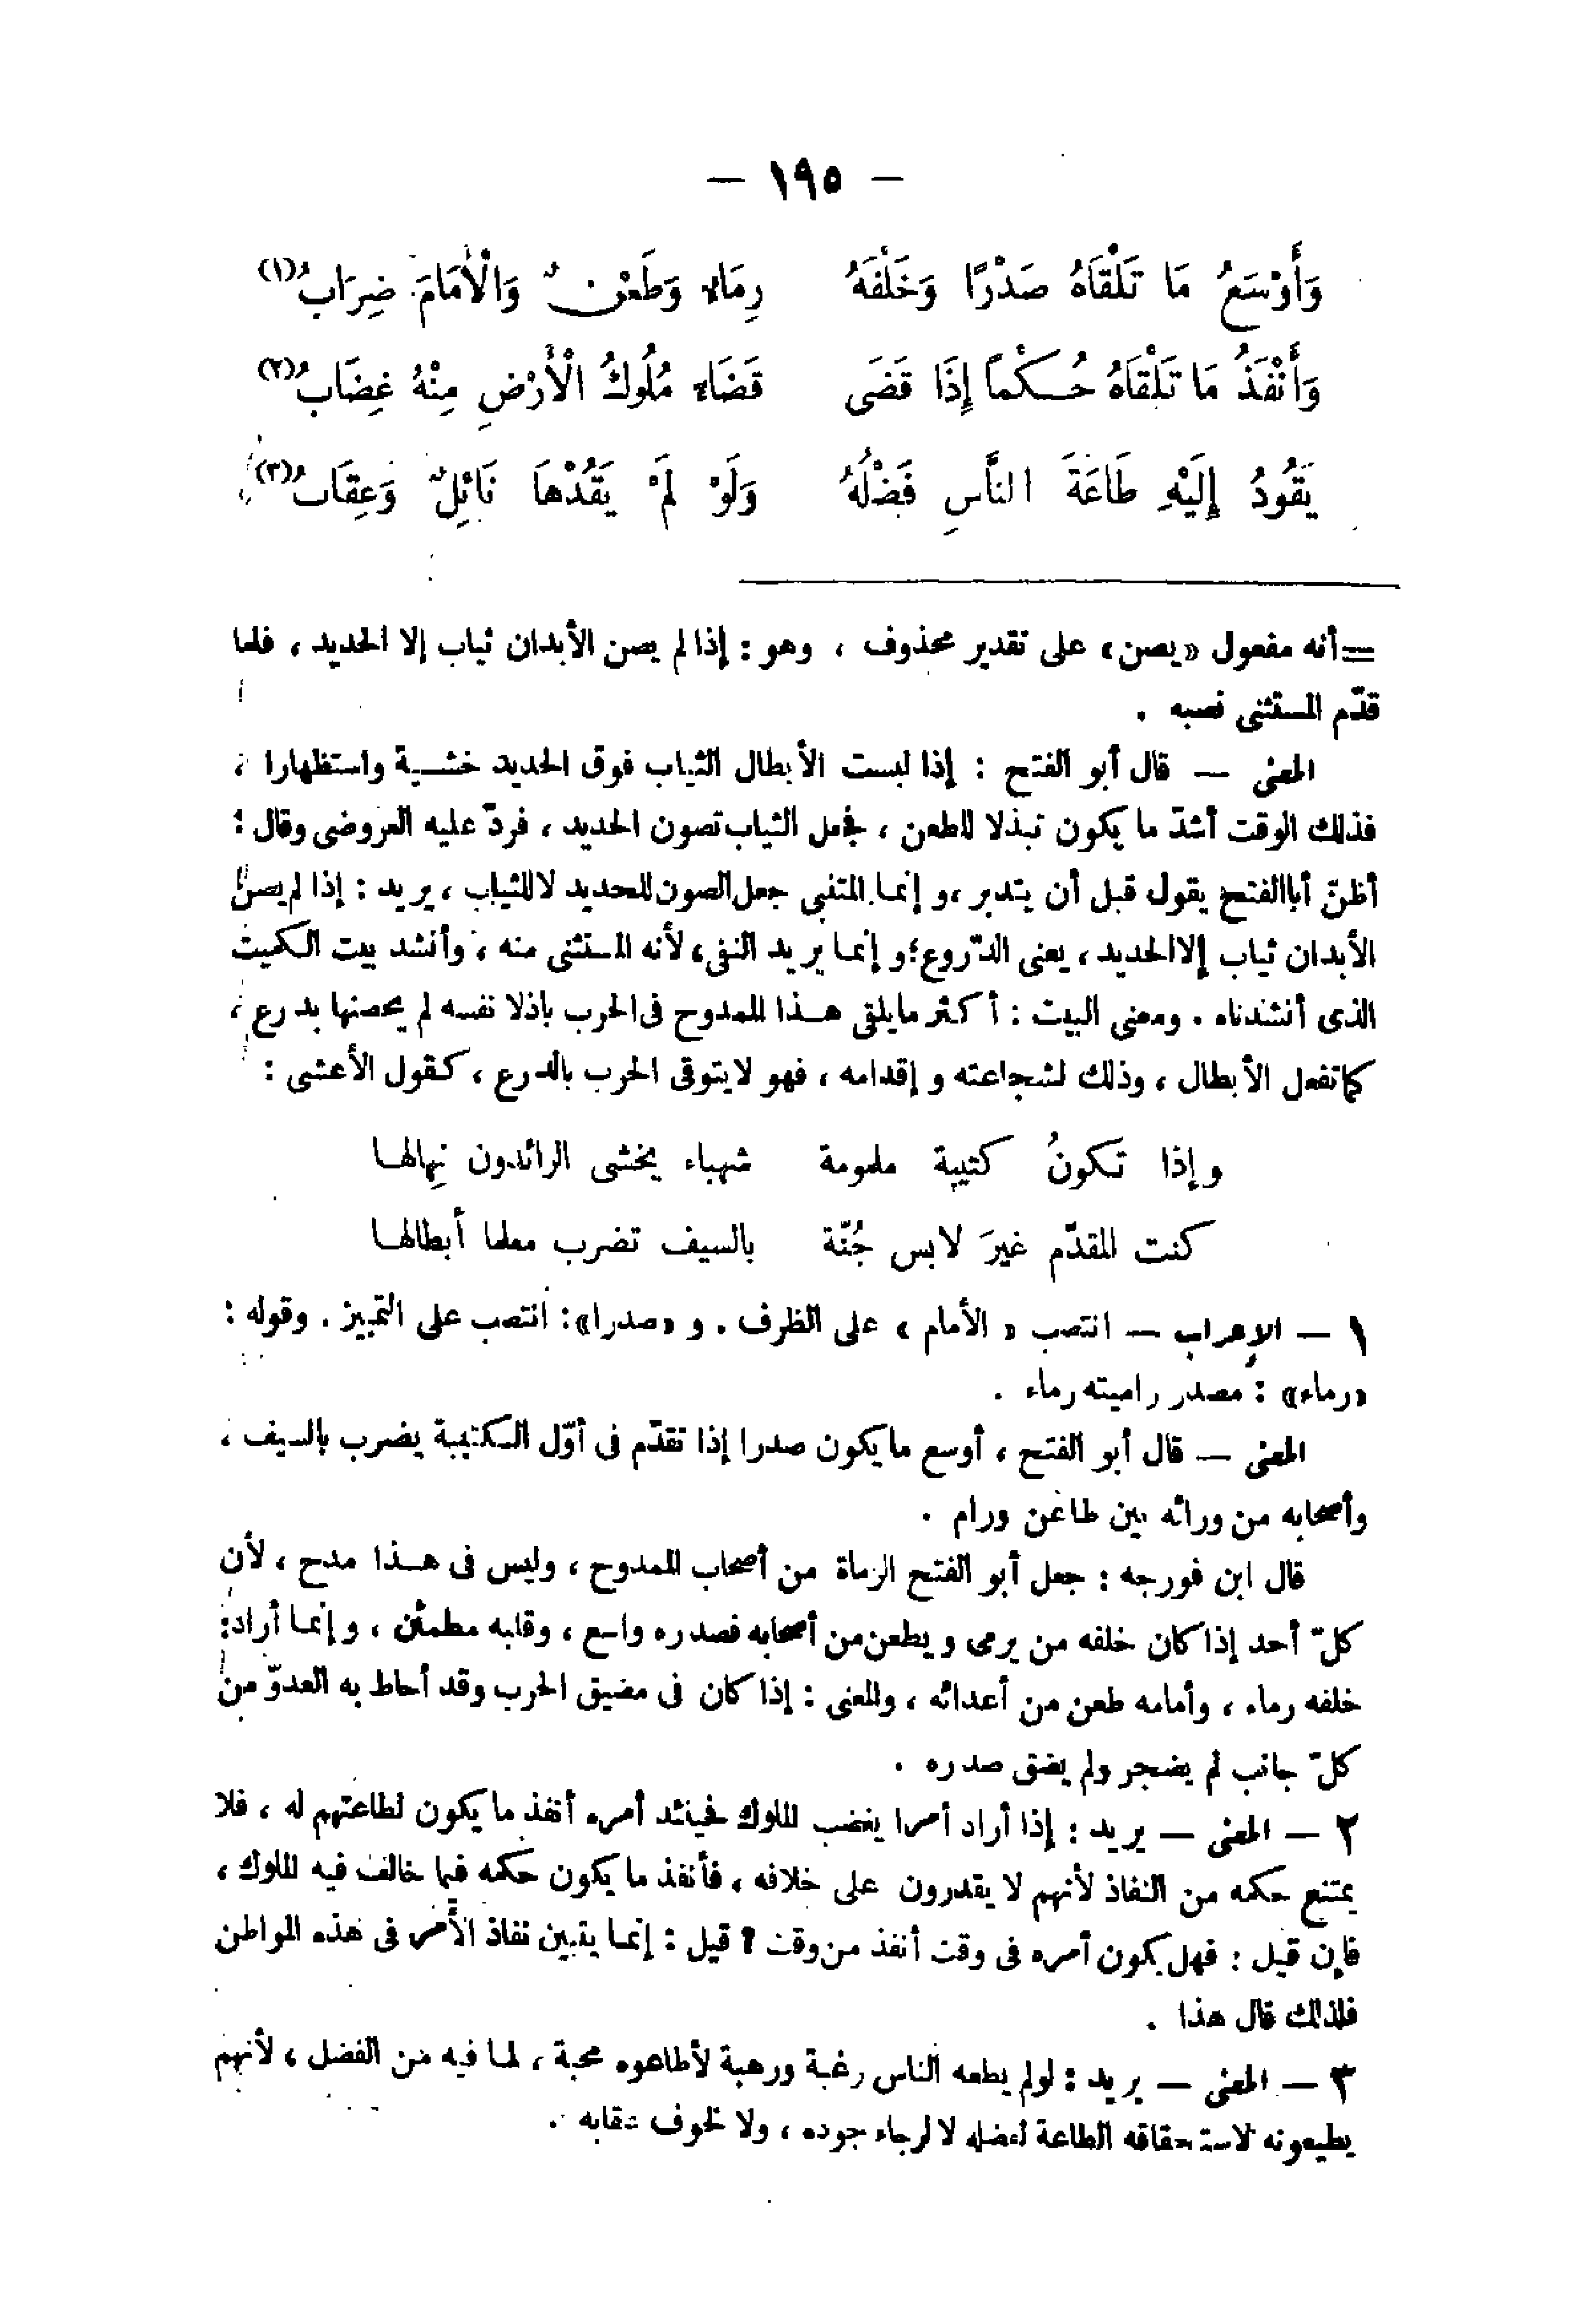 — ١٩٥ —
وَأَوْسَعُ مَا تَلْقَاهُ صَدْرًا وَخَلْفَهُ رِمَاءٌ وَطَعْنٌ وَالْأَمَامَ ضِرَابُ(١)
وَأَنْفَذُ مَا تَلْقَاهُ حُكْماً إِذَا قَضَى قَضَاءً مُلُوكُ الْأَرْضِ مِنْهُ غِضَابُ(٢)
يَقُودُ إِلَيْهِ طَاعَةَ النَّاسِ فَضْلُهُ وَلَوْ لَمْ يَقُدْهَا نَائِلٌ وَعِقَابُ(٣)
= أنه مفعول «يصن» على تقدير محذوف ، وهو : إذا لم يصن الأبدان ثياب إلا الحديد ، فلما
قدّم المستثنى نصبه .
المعنى — قال أبو الفتح : إذا لبست الأبطال الثياب فوق الحديد خشية واستظهارا ،
فذلك الوقت أشدّ ما يكون تبذلا للطعن ، فجعل الثياب تصون الحديد ، فردّ عليه العروضى وقال :
أظنّ أبا الفتح يقول قبل أن يتدبر ، و إنما المتنبى جعل الصون للحديد لا للثياب ، يريد : إذا لم يصن
الأبدان ثياب إلا الحديد ، يعنى الدّروع ؛ و إنما يريد النفى ، لأنه المستثنى منه ، وأنشد بيت الكميت
الذى أنشدناه . ومعنى البيت : أكثر ما يلقى هذا الممدوح فى الحرب باذلا نفسه لم يحصنها بدرع ،
كما تفعل الأبطال ، وذلك لشجاعته و إقدامه ، فهو لا يتوقى الحرب بالدرع ، كقول الأعشى :
و إذا تكونُ كتيبة ملمومة شهباء يخشى الرائدون نِهالها
كنت المقدّم غيرَ لابس جُنّة بالسيف تضرب معلما أبطالها
١ — الإعراب — انتصب « الأمام » على الظرف . و «صدرا» : انتصب على التمييز . وقوله :
«رماء» : مصدر راميته رماء .
المعنى — قال أبو الفتح ، أوسع ما يكون صدرا إذا تقدّم فى أوّل الكتيبة يضرب بالسيف ،
وأصحابه من ورائه بين طاعن ورام .
قال ابن فورجه : جعل أبو الفتح الرماة من أصحاب الممدوح ، وليس فى هذا مدح ، لأن
كلّ أحد إذا كان خلفه من يرمى و يطعن من أصحابه فصدره واسع ، وقلبه مطمئن ، و إنما أراد :
خلفه رماء ، وأمامه طعن من أعدائه ، والمعنى : إذا كان فى مضيق الحرب وقد أحاط به العدوّ من
كلّ جانب لم يضجر ولم يضق صدره .
٢ — المعنى — يريد : إذا أراد أمرا يغضب الملوك فحينئد أمره أنفذ ما يكون لطاعتهم له ، فلا
يمتنع حكمه من النفاذ لأنهم لا يقدرون على خلافه ، فأنفذ ما يكون حكمه فيما خالف فيه الملوك ،
فإن قيل : فهل يكون أمره فى وقت أنفذ من وقت ؟ قيل : إنما يتبين نفاذ الأمر فى هذه المواطن
فلذلك قال هذا .
٣ — المعنى — يريد : لو لم يطعه الناس رغبة ورهبة لأطاعوه محبة ، لما فيه من الفضل ، لأنهم
يطيعونه لاستحقاقه الطاعة لفضله لا لرجاء جوده ، ولا لخوف عقابه .